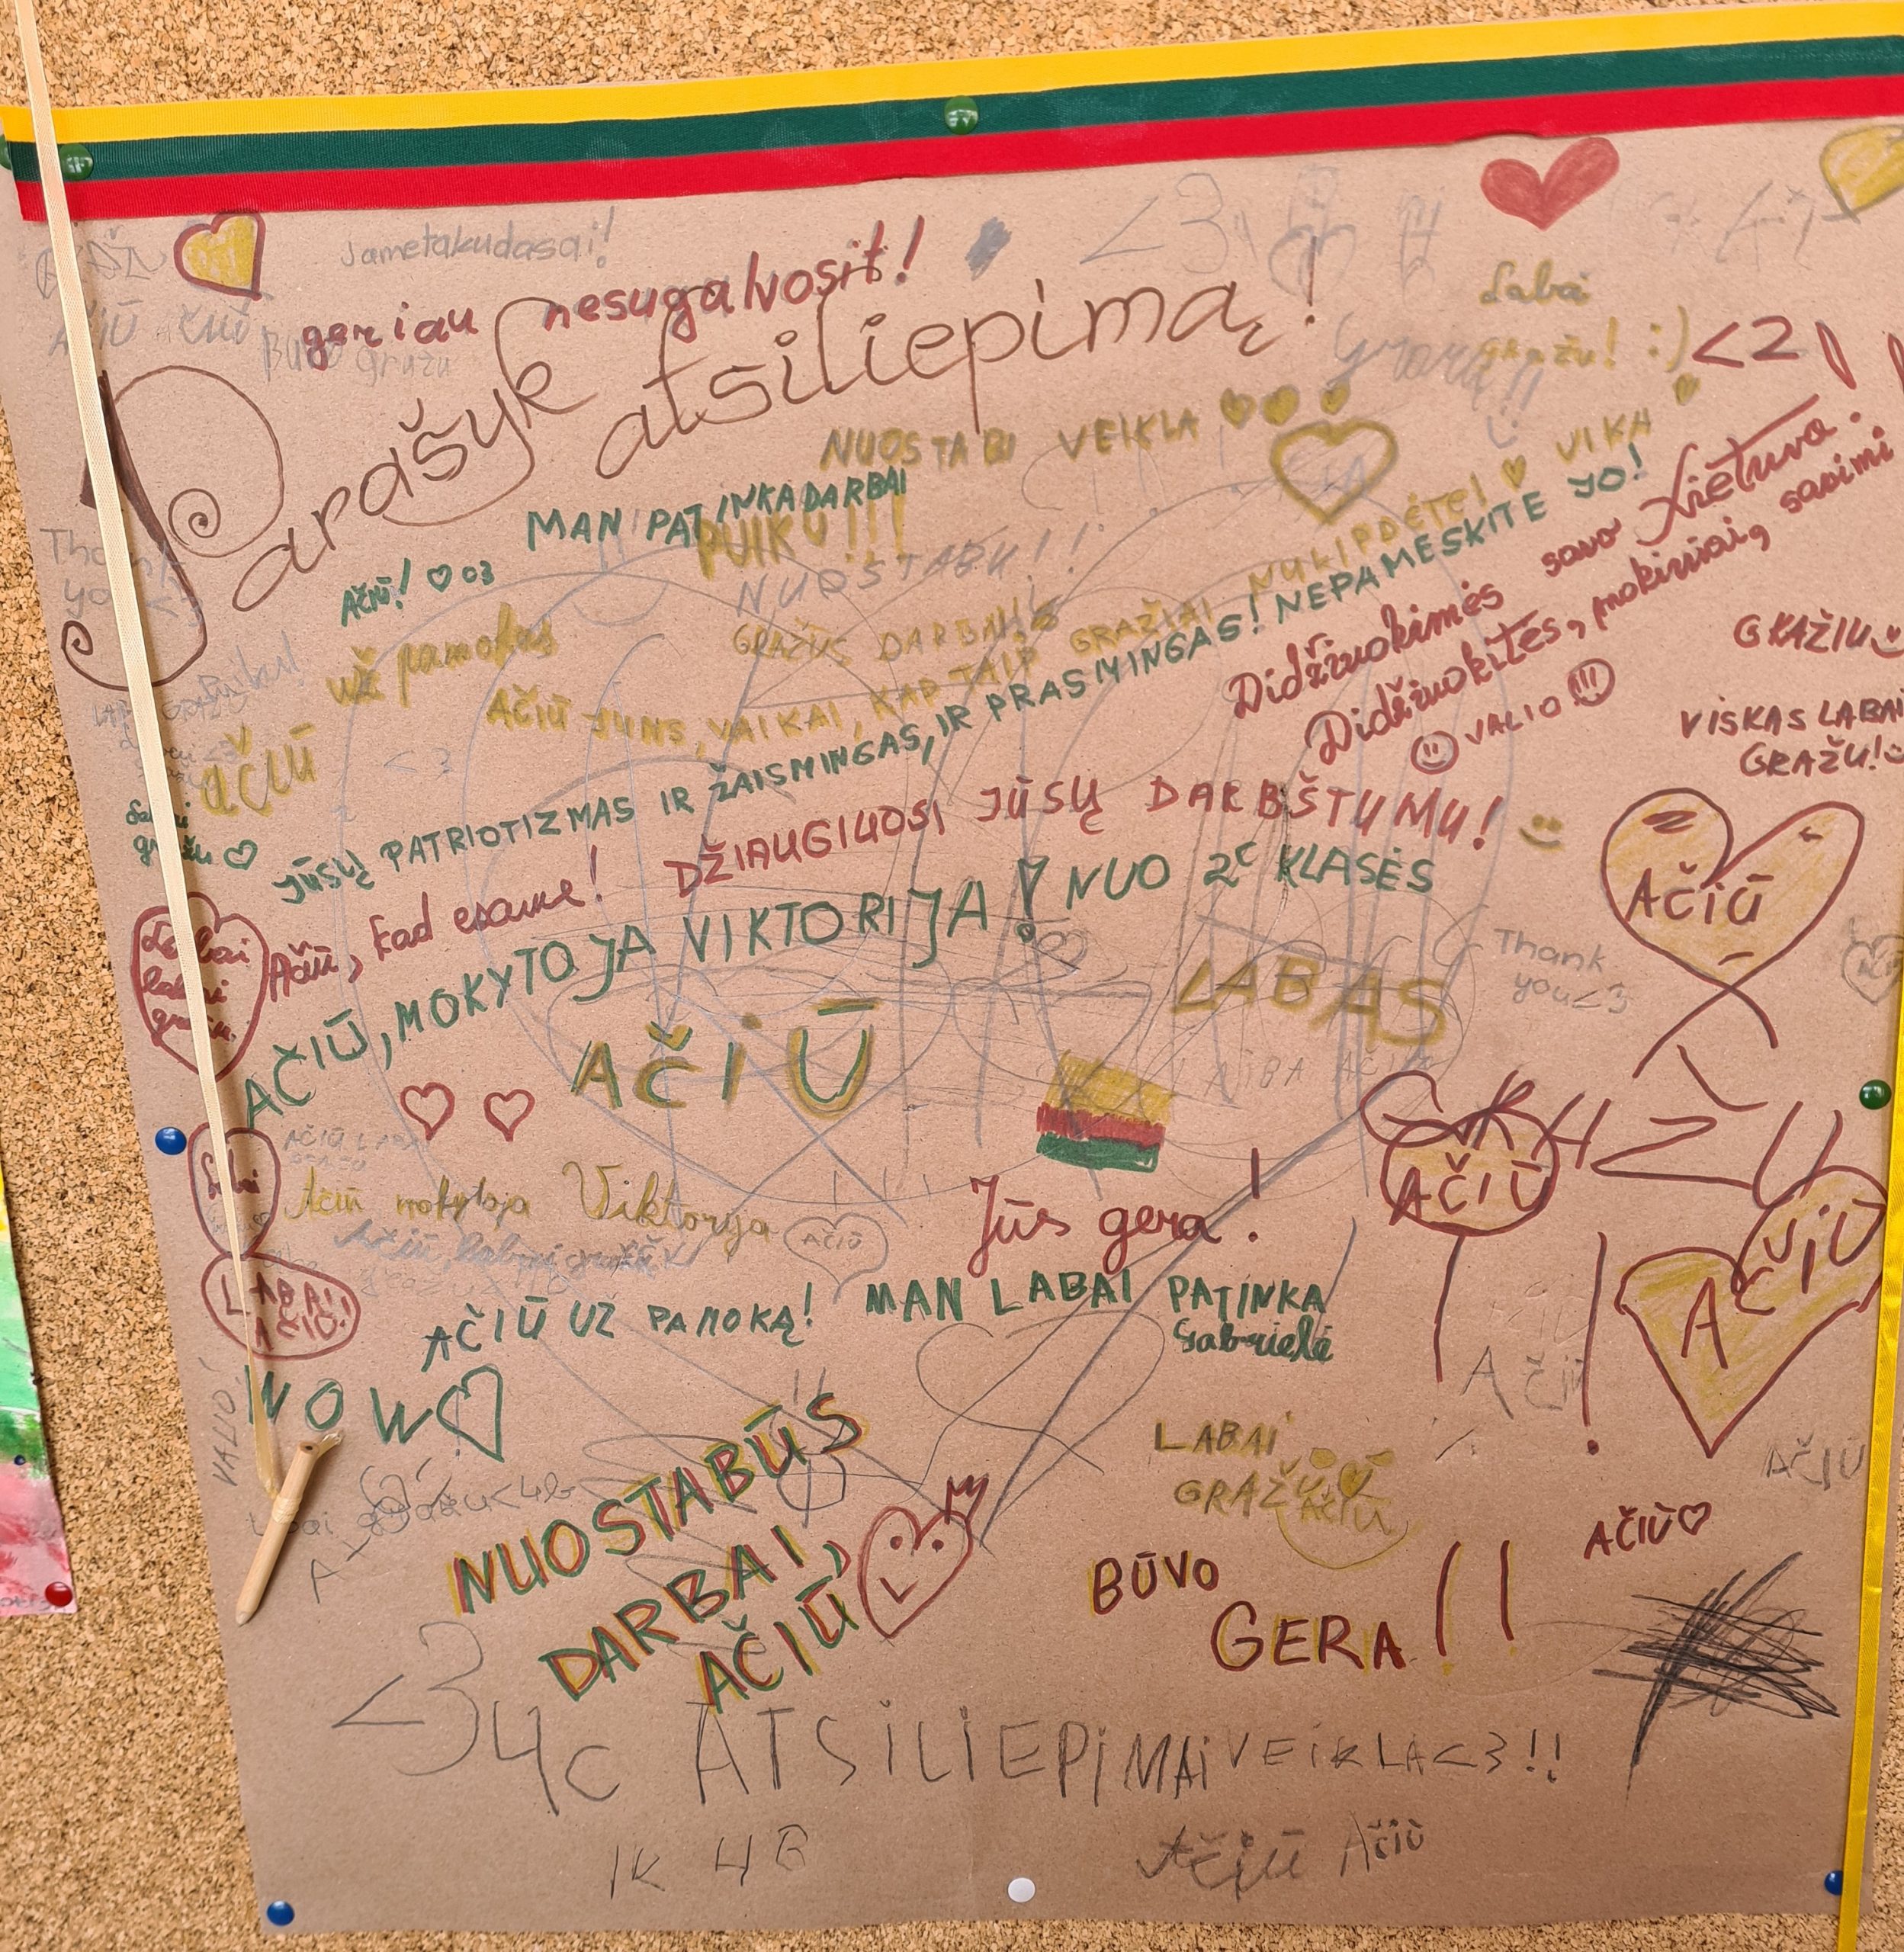 Jametakudasai!
geriau nesugalvosit!
<3
Parašyk atsiliepimą!
Buvo gražu
Labai
gražu! :)
<2
NUOSTABI VEIKLA
MAN PATINKA DARBAI
PUIKU!!!
NUOSTABU!!
AČIŪ! ♡ 03
Thank
you <3
už pamokas
ačiū
GRAŽŪS DARBAI!
AČIŪ JUMS, VAIKAI, KAD TAIP GRAŽIAI NULIPDĖTE! ♡ VIKA
JŪSŲ PATRIOTIZMAS IR ŽAISMINGAS, IR PRASMINGAS! NEPAMESKITE JO!
Didžiuokimės savo Lietuva.
Didžiuokitės, mokiniai, savimi
☺ VALIO
GRAŽIU
VISKAS LABAI
GRAŽU!
Puiku!
<3
Labai
gražu ♡
Ačiū, kad esame!
DŽIAUGIUOSI JŪSŲ DARBŠTUMU!
AČIŪ, MOKYTOJA VIKTORIJA! NUO 2c KLASĖS
AČIŪ
Labai
labai
gražu
LABAS
Thank
you<3
AČIŪ
GRAZU
AČIŪ
Ačiū mokytoja Viktorija
AČIŪ
Jūs gera!
AČIŪ
LABAI
AČIŪ!
AČIŪ UŽ PAMOKĄ!
MAN LABAI PATINKA
Gabrielė
AČIŪ
VALIO!
WOW
NUOSTABŪS
DARBAI,
AČIŪ
LABAI
GRAŽU
AČIŪ
AČIŪ
AČIŪ♡
BŪVO
GERA!!
<3
4c ATSILIEPIMAI VEIKLA<3!!
IK 4B
Ačiū Ačiū